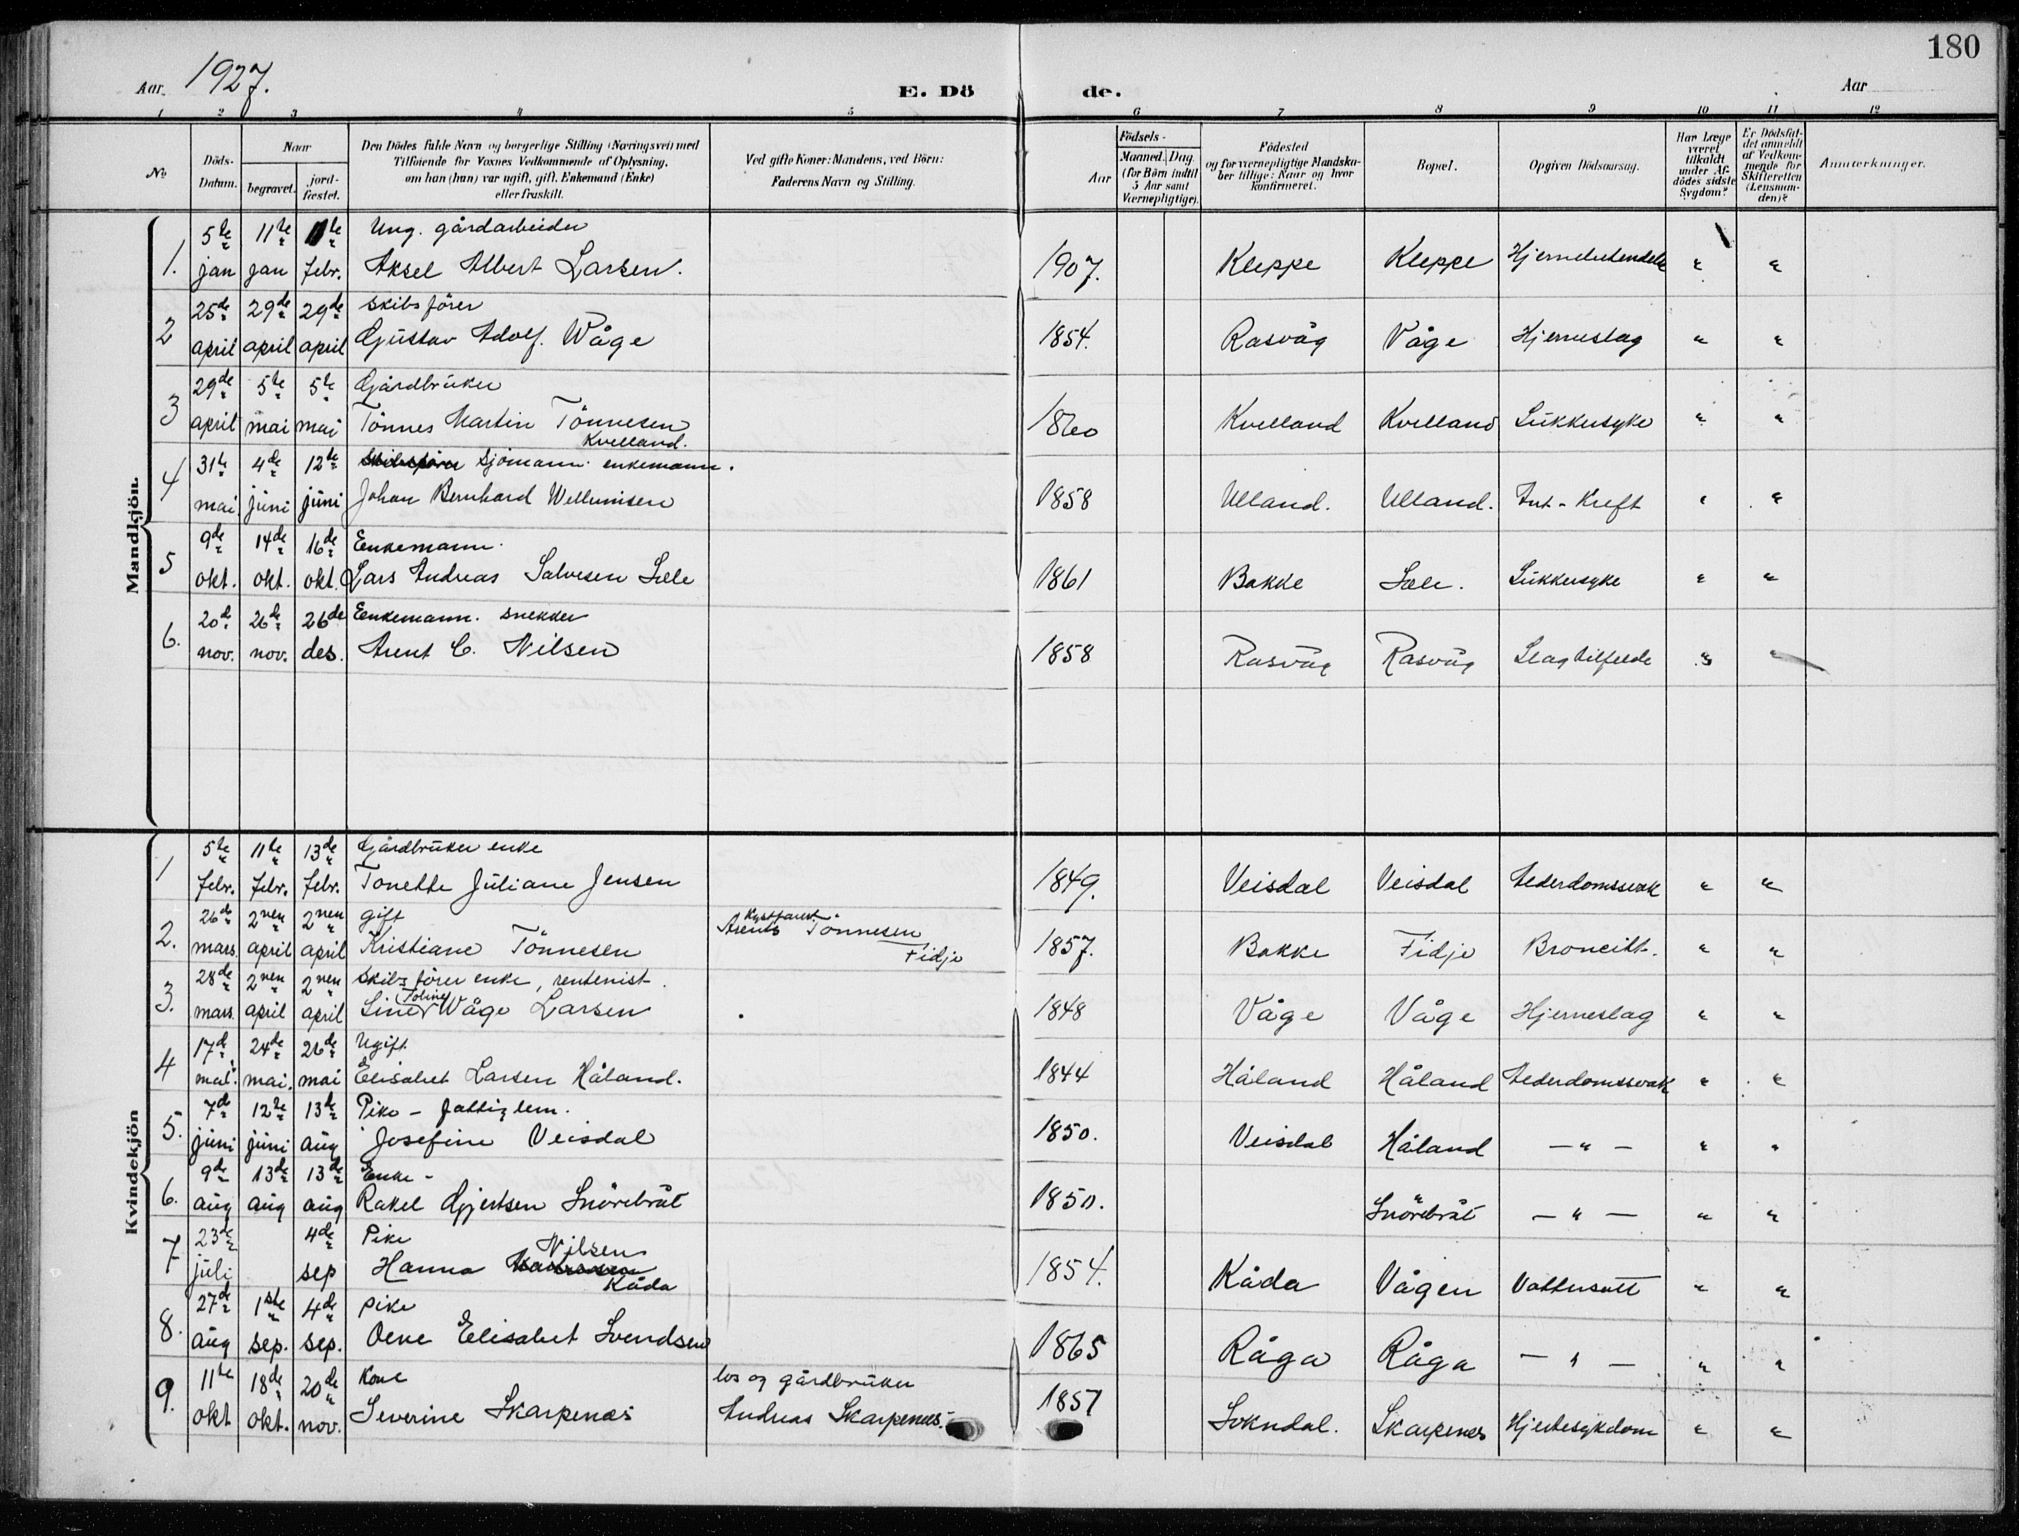 180
Aar 1927. E. Dö de. Aar
1 2 3 4 5 6 7 8 9 10 11 12
No
Döds-Datum.
Naar
begravet.
jord-fæstet.
Den Dödes fulde Navn og borgerlige Stilling (Næringsvei) med
Tilföiende for Voxnes Vedkommende af Oplysning,
om han (hun) var ugift, gift, Enkemand (Enke)
eller fraskilt.
Ved gifte Koner: Mandens, ved Börn:
Faderens Navn og Stilling.
Födsels-
Aar
Maaned. Dag.
(for Börn indtil
5 Aar samt
Værnepligtige).
Födested
og for værnepligtige Mandska-
ber tillige: Naar og hvor
konfirmeret.
Bopæl.
Opgiven Dödsaarsag.
Har Læge
været
tilkaldt
under Af-
dödes sidste
Sygdom?
Er Dödsfal-
det anmeldt
af Vedkom-
mende for
Skifteretten
(Lensman-
den)?
Anmærkninger.
Mandkjön.
5te 11te 11te Ung. gårdarbeider
1. jan jan febr. Aksel Albert Larsen. 1907. Kleppe Kleppe " "
25de 29de 29de Skibsförer
2 april april april Gustav Adolf Våge 1854. Rasvåg Våge Hjerneslag " "
29de 5te 5te Gårdbruker
3 april mai mai Tönnes Martin Tönnesen 1860 Kvelland Kvelland Sukkersyke " "
Kvelland.
31te 4de 12te Skibsförer Sjömann enkemann.
4 mai juni juni Johan Bernhard Wellumsen 1858 Ulland. Ulland. Kreft " "
9de 14de 16de Enkemann.
5 okt. okt. okt. Lars Andreas Salvesen Sæle 1861 Bakke Sæle. Sukkersyke " "
20de 26de 26de Enkemann. snekker
6. nov. nov. des. Arent C. Nilsen 1858 Rasvåg Rasvåg Slagtilfelde " "
Kvindekjön
5te 11te 13de Gårdbruker enke
1 febr. febr. febr. Tonette Juliane Jensen 1849. Veisdal Veisdal Alderdomssvak " "
26de 2nen 2nen gift Arent Tönnesen
2. mars april april Kristiane Tönnesen Fidje 1857. Bakke Fidje Broncitt. " "
28de 2nen 2nen Skibsförer enke, rentenist.
3. mars. april april Sine Toline Våge Larsen 1848 Våge Våge Hjerneslag " "
17de 24de 26de Ugift
4 mai. mai. mai Elisabet Larsen Håland. 1844 Håland Håland Alderdomssvak " "
7de 12te 13de Pike – fattiglem.
5. juni juni aug Josefine Veisdal 1850. Veisdal Håland — " — " "
9de 13de 13de Enke –
6. aug aug aug Rakel Gjertsen Snörebråt 1850. Snörebråt — " — " "
23de 4de Pike
7 juli sep Hanna Nilsen 1854. Kåda Vågen Vattersott " "
Kåda
27de 1ste 4de Pike
8. aug sep. sep. Oene Elisabet Svendsen 1865 Råga Råga — " — " "
11te 18de 20de Kone los og gårdbruker
9. okt okt. nov. Severine Skarpenæs Andreas Skarpenæs. 1857 Sokndal. Skarpenes Hjertesykdom " "